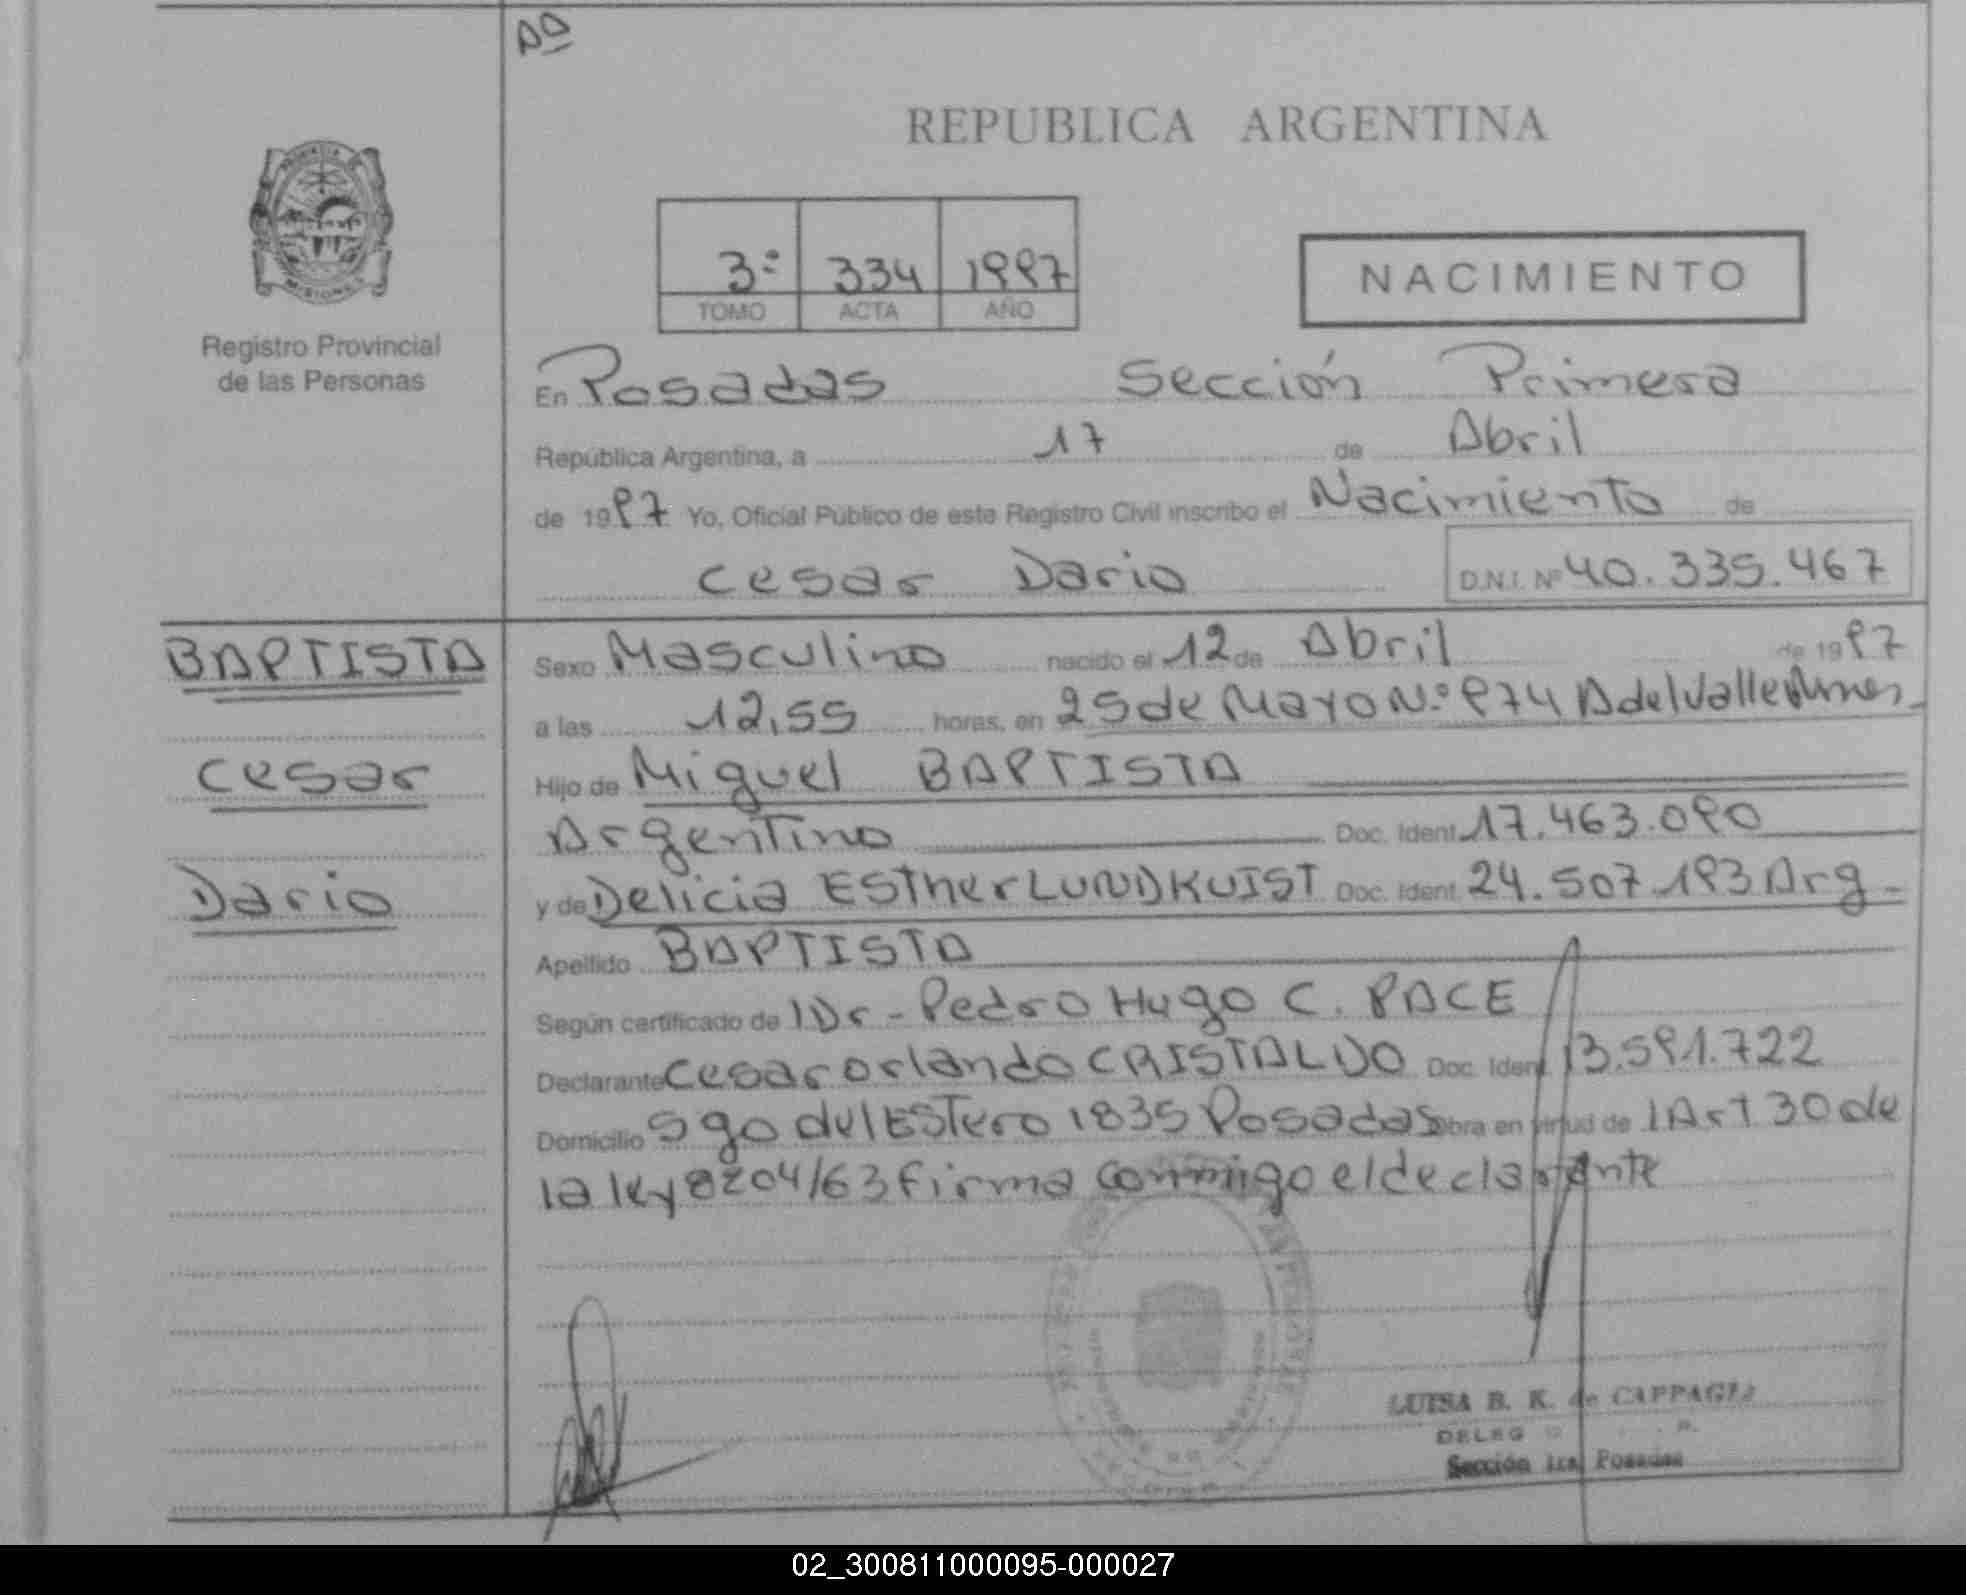 Aa
REPUBLICA ARGENTINA
PROVINCIA DE
MISIONES
Registro Provincial
de las Personas
3º 334 1997
TOMO ACTA AÑO
NACIMIENTO
En Posadas Sección Primera
República Argentina, a 17 de Abril
de 1997 Yo, Oficial Público de este Registro Civil inscribo el Nacimiento de
Cesar Dario D.N.I. Nº 40.335.467
BAPTISTA
Cesar
Dario
Sexo Masculino nacido el 12 de Abril de 1997
a las 12,55 horas, en 25 de Mayo Nº 974 A del Valle
Hijo de Miguel BAPTISTA
Argentino Doc. Ident. 17.463.090
y de Delicia Esther LUNDKUIST Doc. Ident. 24.507.193 Arg
Apellido BAPTISTA
Según certificado de lDr - Pedro Hugo C. PACE
Declarante Cesar Orlando CRISTALDO Doc. Ident. 13.591.722
Domicilio Sgo del Estero 1835 Posadas Obra en virtud de lArt 30 de
la ley 8204/63 firma conmigo el declarante
LUISA B. K. de
DELEG
Sección 1ra. Posadas
02_300811000095-000027